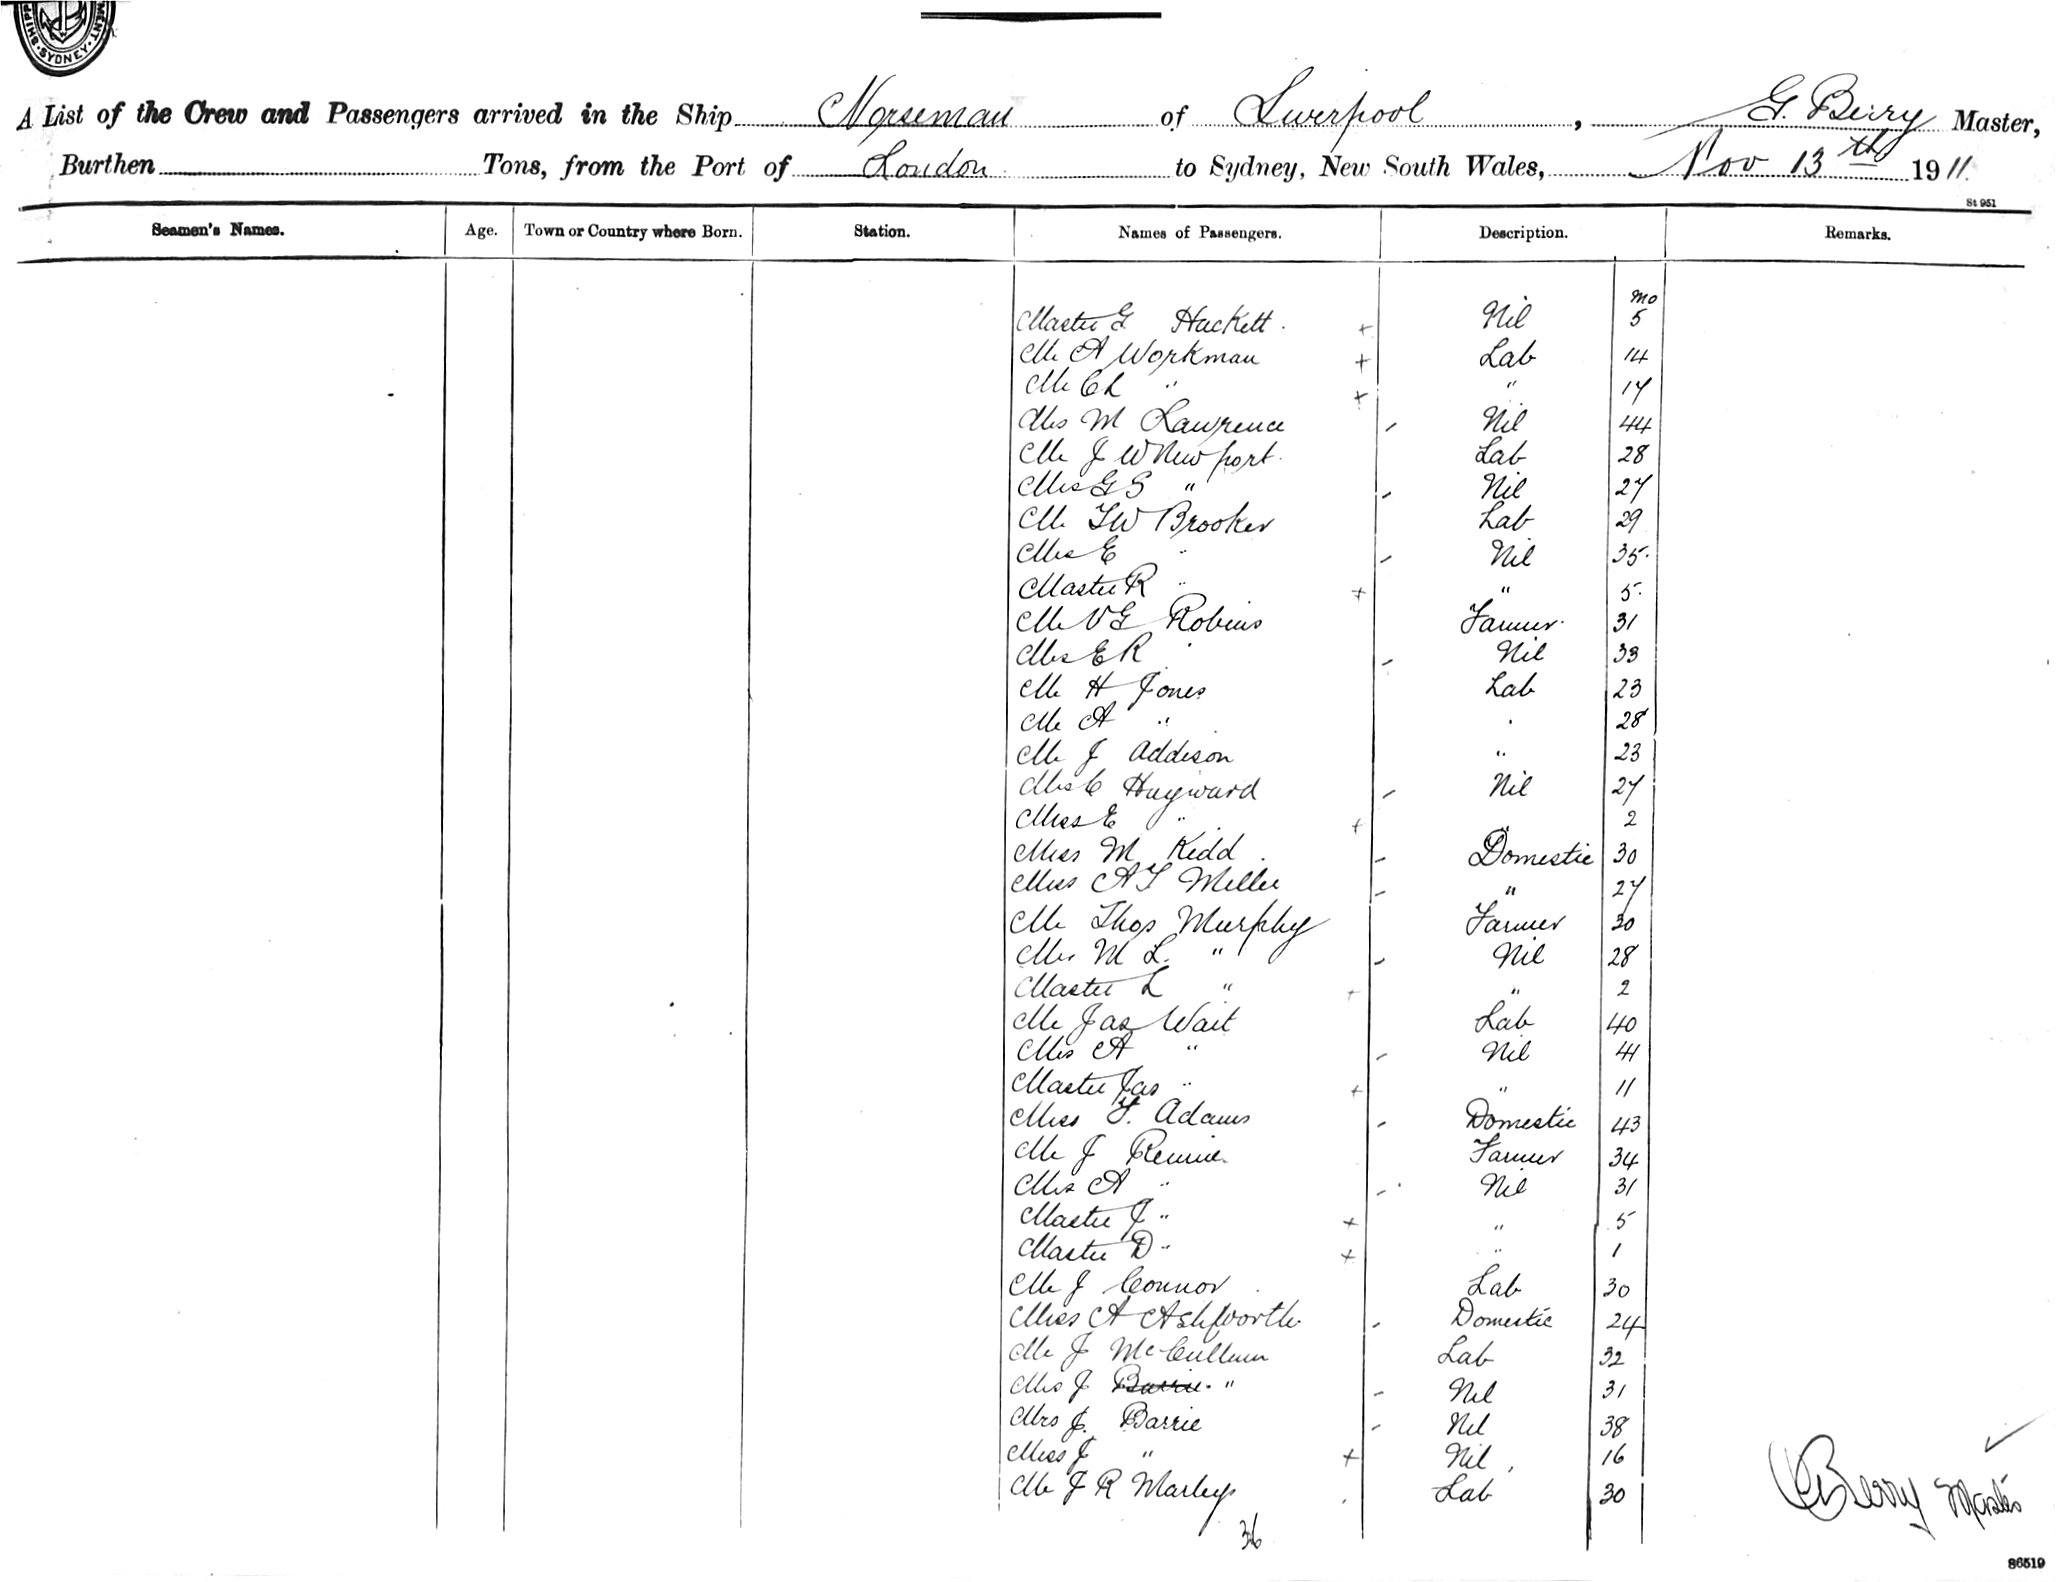 SHIPP MENT. SYDNEY.
A List of the Crew and Passengers arrived in the Ship Norseman of Liverpool, G. Berry Master,
Burthen Tons, from the Port of London to Sydney, New South Wales, Nov 13th 1911.
St 951
Seamen's Names. Age. Town or Country where Born. Station. Names of Passengers. Description. Remarks.
mo
Master G Hackett. + Nil 5
Mr A Workman + Lab 14
Mr Ch " + " 17
Mrs M Lawrence - Nil 44
Mr J W Newport. Lab 28
Mrs G S " - Nil 27
Mr T W Brooker Lab 29
Mrs E " - Nil 35.
Master R " + " 5.
Mr V G Robins Farmer. 31
Mrs E R " - Nil 33
Mr H Jones Lab 23
Mr A " " 28
Mr J Addison " 23
Mrs C Hayward - Nil 27
Miss E " + " 2
Miss M Kidd - Domestic 30
Miss A T Miller - " 27
Mr Thos Murphy Farmer 30
Mrs M L. " - Nil 28
Master L " + " 2
Mr Jas Wait Lab 40
Mrs A " - Nil 41
Master Jas " + " 11
Miss F. Adams - Domestic 43
Mr J Rennie Farmer 34
Mrs A " - Nil 31
Master J " + " 5
Master D " + " 1
Mr J Connor Lab 30
Miss A Ashworth - Domestic 24
Mr J McCullum Lab 32
Mrs J Barrie " - Nil 31
Mrs J. Barrie - Nil 38
Miss J " + Nil 16
Mr J R Marley Lab 30
36
G Berry Master
86519